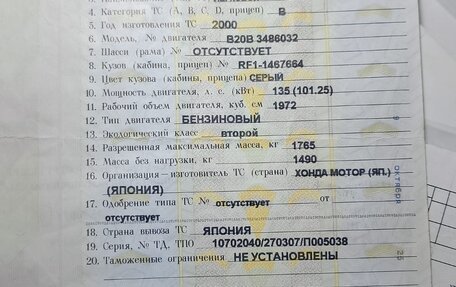 4. Категория ТС (А, В, С, D, прицеп) В
5. Год изготовления ТС 2000
6. Модель, № двигателя B20B 3486032
7. Шасси (рама) № ОТСУТСТВУЕТ
8. Кузов (кабина, прицеп) № RF1-1467664
9. Цвет кузова (кабины, прицепа) СЕРЫЙ
10. Мощность двигателя, л. с. (кВт) 135 (101.25)
11. Рабочий объем двигателя, куб. см 1972
12. Тип двигателя БЕНЗИНОВЫЙ
13. Экологический класс второй
14. Разрешенная максимальная масса, кг 1765
15. Масса без нагрузки, кг 1490
16. Организация – изготовитель ТС (страна) ХОНДА МОТОР (ЯП.)
(ЯПОНИЯ)
17. Одобрение типа ТС № отсутствует от
отсутствует
18. Страна вывоза ТС ЯПОНИЯ
19. Серия, № ТД, ТПО 10702040/270307/П005038
20. Таможенные ограничения НЕ УСТАНОВЛЕНЫ
9
ОКТЯБРЯ
25